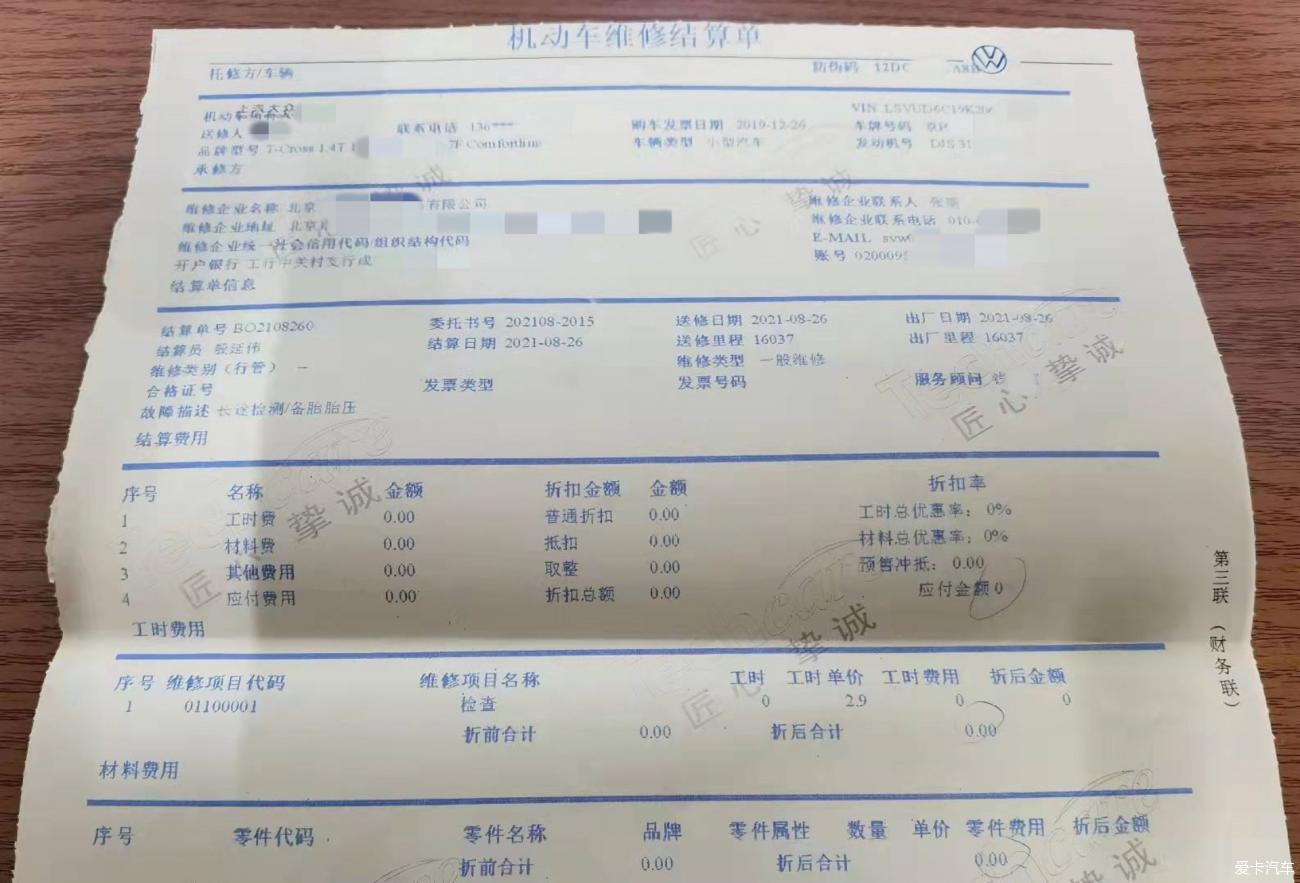 机动车维修结算单
托修方/车辆 防伪码 12DC
VIN LSVUD6C19K2
送修人 联系电话 136**** 购车发票日期 2019-12-26 车牌号码 京P
品牌型号 T-Cross 1.4T 7F Comfortline 车辆类型 小型汽车 发动机号 DJS 31
承修方
维修企业名称 北京 有限公司 维修企业联系人 张
维修企业地址 北京 维修企业联系电话 010-
维修企业统一社会信用代码/组织结构代码 E-MAIL svw
开户银行 工行中关村支行成 账号 020009
结算单信息
结算单号 BO2108260 委托书号 202108-2015 送修日期 2021-08-26 出厂日期 2021-08-26
结算员 张廷伟 结算日期 2021-08-26 送修里程 16037 出厂里程 16037
维修类别（行管） — 维修类型 一般维修
合格证号 发票类型 发票号码 服务顾问
故障描述 长途检测/备胎胎压
结算费用
序号 名称 金额 折扣金额 金额 折扣率
1 工时费 0.00 普通折扣 0.00 工时总优惠率：0%
2 材料费 0.00 抵扣 0.00 材料总优惠率：0%
3 其他费用 0.00 取整 0.00 预售冲抵：0.00
4 应付费用 0.00 折扣总额 0.00 应付金额 0
工时费用
序号 维修项目代码 维修项目名称 工时 工时单价 工时费用 折后金额
1 01100001 检查 0 2.9 0 0
折前合计 0.00 折后合计 0.00
材料费用
序号 零件代码 零件名称 品牌 零件属性 数量 单价 零件费用 折后金额
折前合计 0.00 折后合计 0.00
第三联（财务联）
Techcare
匠心 挚诚
匠心 挚诚
匠心 挚诚
匠心 挚诚
挚诚
挚诚
爱卡汽车